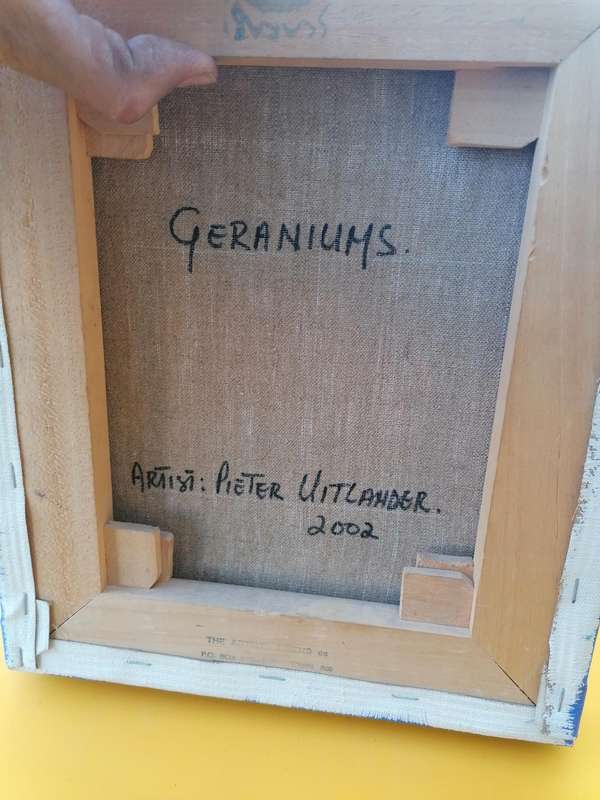 GERANIUMS.
ARTIST: PIETER UITLANDER.
2002
THE
P.O. BOX